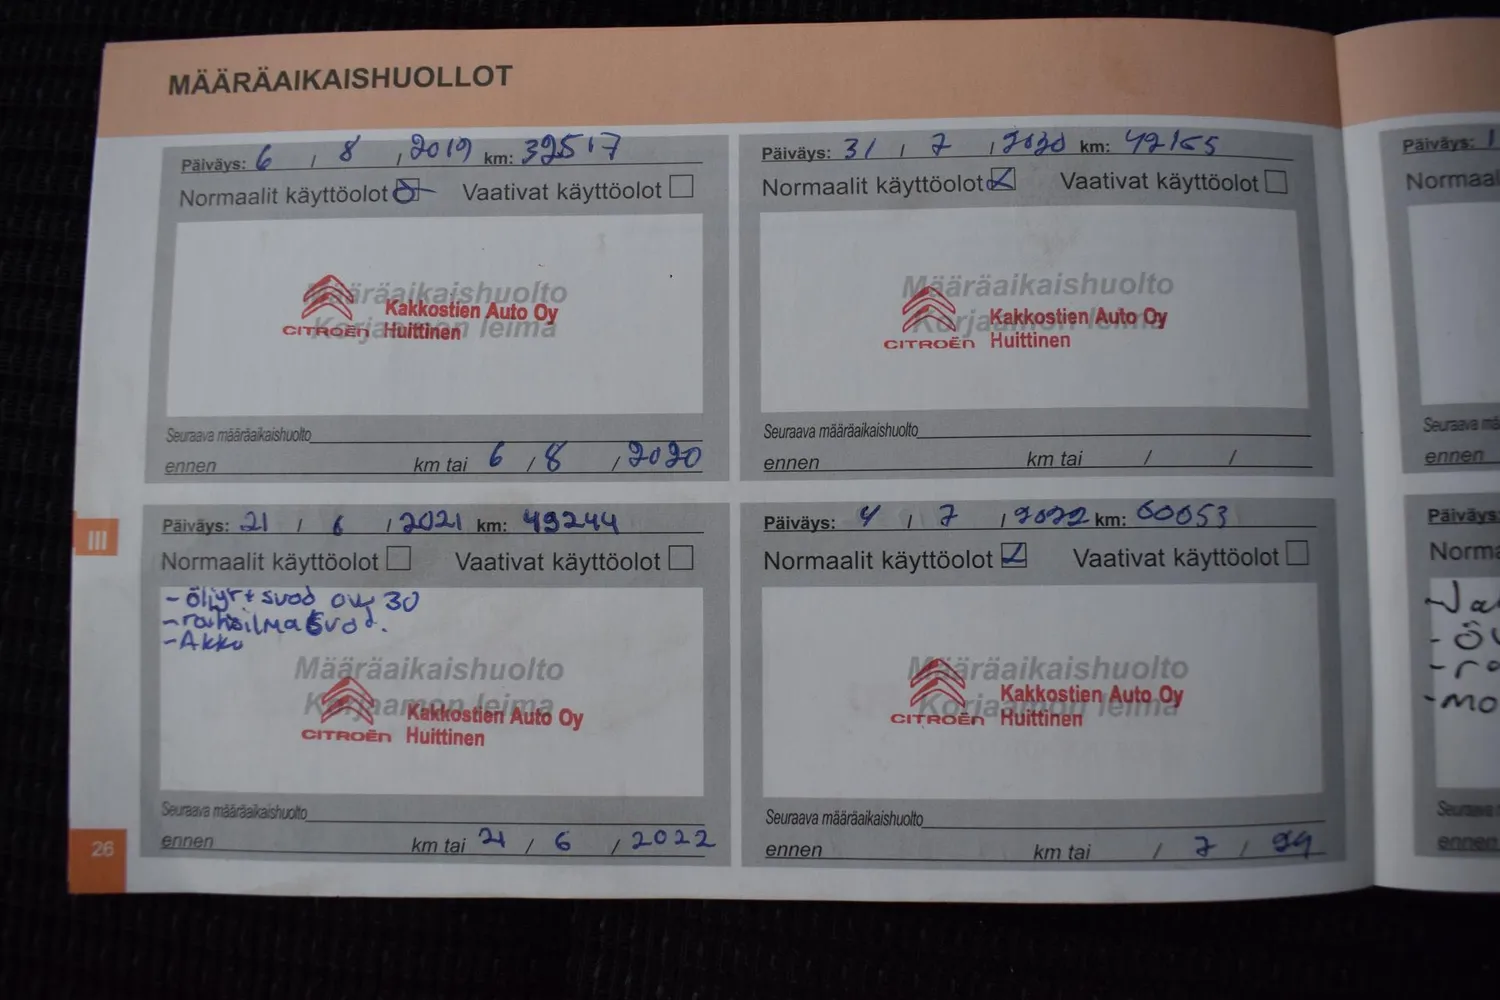 MÄÄRÄAIKAISHUOLLOT
Päiväys: 6 / 8 / 2019 km: 32517
Normaalit käyttöolot Vaativat käyttöolot
Määräaikaishuolto
Korjaamon leima
CITROËN Kakkostien Auto Oy
Huittinen
Seuraava määräaikaishuolto
ennen km tai 6 / 8 / 2020
Päiväys: 31 / 7 / 2020 km: 42155
Normaalit käyttöolot Vaativat käyttöolot
Määräaikaishuolto
Korjaamon leima
CITROËN Kakkostien Auto Oy
Huittinen
Seuraava määräaikaishuolto
ennen km tai / /
III
Päiväys: 21 / 6 / 2021 km: 49244
Normaalit käyttöolot Vaativat käyttöolot
- öljyt + svod 30
- svod.
- Akku
Määräaikaishuolto
Korjaamon leima
CITROËN Kakkostien Auto Oy
Huittinen
Seuraava määräaikaishuolto
ennen km tai 21 / 6 / 2022
Päiväys: 4 / 7 / 2022 km: 60053
Normaalit käyttöolot Vaativat käyttöolot
Määräaikaishuolto
Korjaamon leima
CITROËN Kakkostien Auto Oy
Huittinen
Seuraava määräaikaishuolto
ennen km tai / 7 /
26
Päiväys: 1
Normaal
Seuraava mä
ennen
Päiväys
Norma
- Va
- ÖV
- ra
- mo
Seuraava
ennen